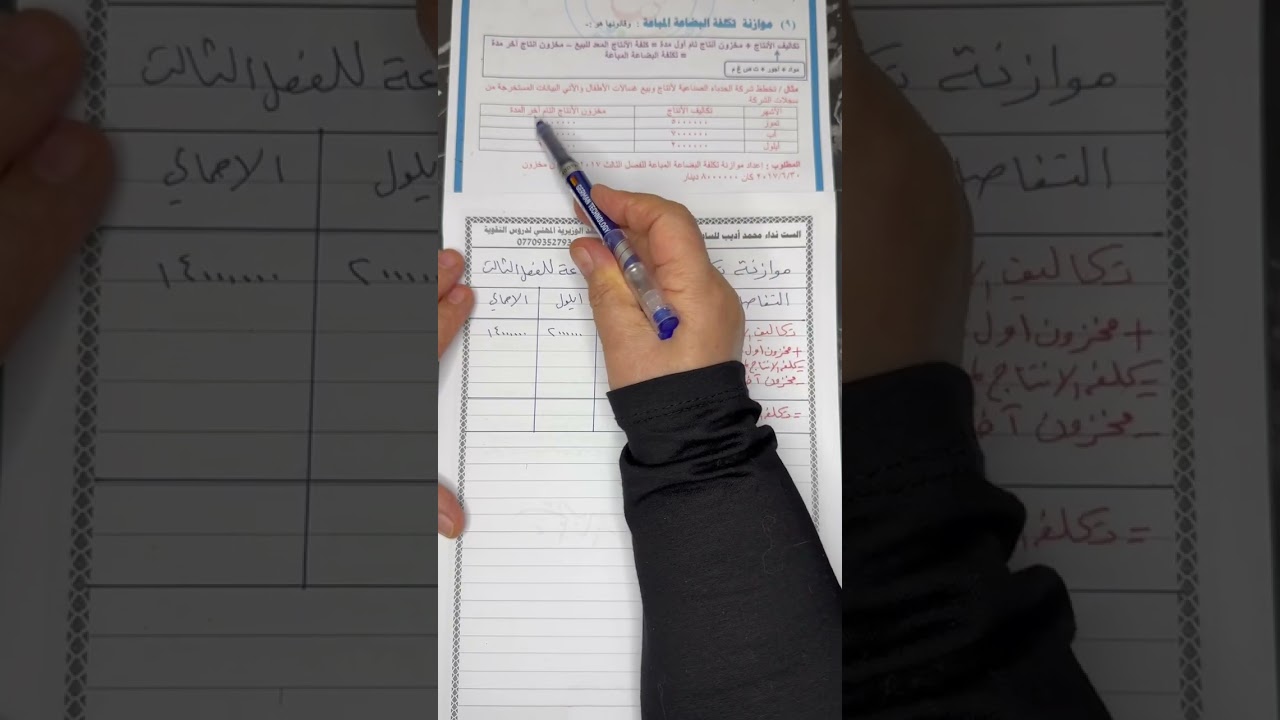 (٩) موازنة تكلفة البضاعة المباعة : وقانونها هو :-
تكاليف الأنتاج + مخزون أنتاج تام أول مدة = كلفة الأنتاج المعد للبيع – مخزون انتاج أخر مدة
= تكلفة البضاعة المباعة
مواد + أجور + ت ص غ م
مثال / تخطط شركة الحدباء الصناعية لأنتاج وبيع غسالات الأطفال والأتي البيانات المستخرجة من
سجلات الشركة
الأشهر تكاليف الأنتاج مخزون الأنتاج التام أخر المدة
تموز ٥٠٠٠٠٠٠
أب ٧٠٠٠٠٠٠
أيلول ٢٠٠٠٠٠٠
المطلوب : اعداد موازنة تكلفة البضاعة المباعة للفصل الثالث ٢٠١٧ مخزون
٢٠١٧/٦/٣٠ كان ٨٠٠٠٠٠٠ دينار
الست نداء محمد أديب الوزيرية المهني لدروس التقوية
07709352793
موازنة عة للفصل الثالث
ايلول الاجمالي
تكاليف ٢٠٠٠٠٠٠ ١٤٠٠٠٠٠٠
+ مخزون اول
= كلفة الانتاج
- مخزون
=
GERMAN TECHNOLOGY